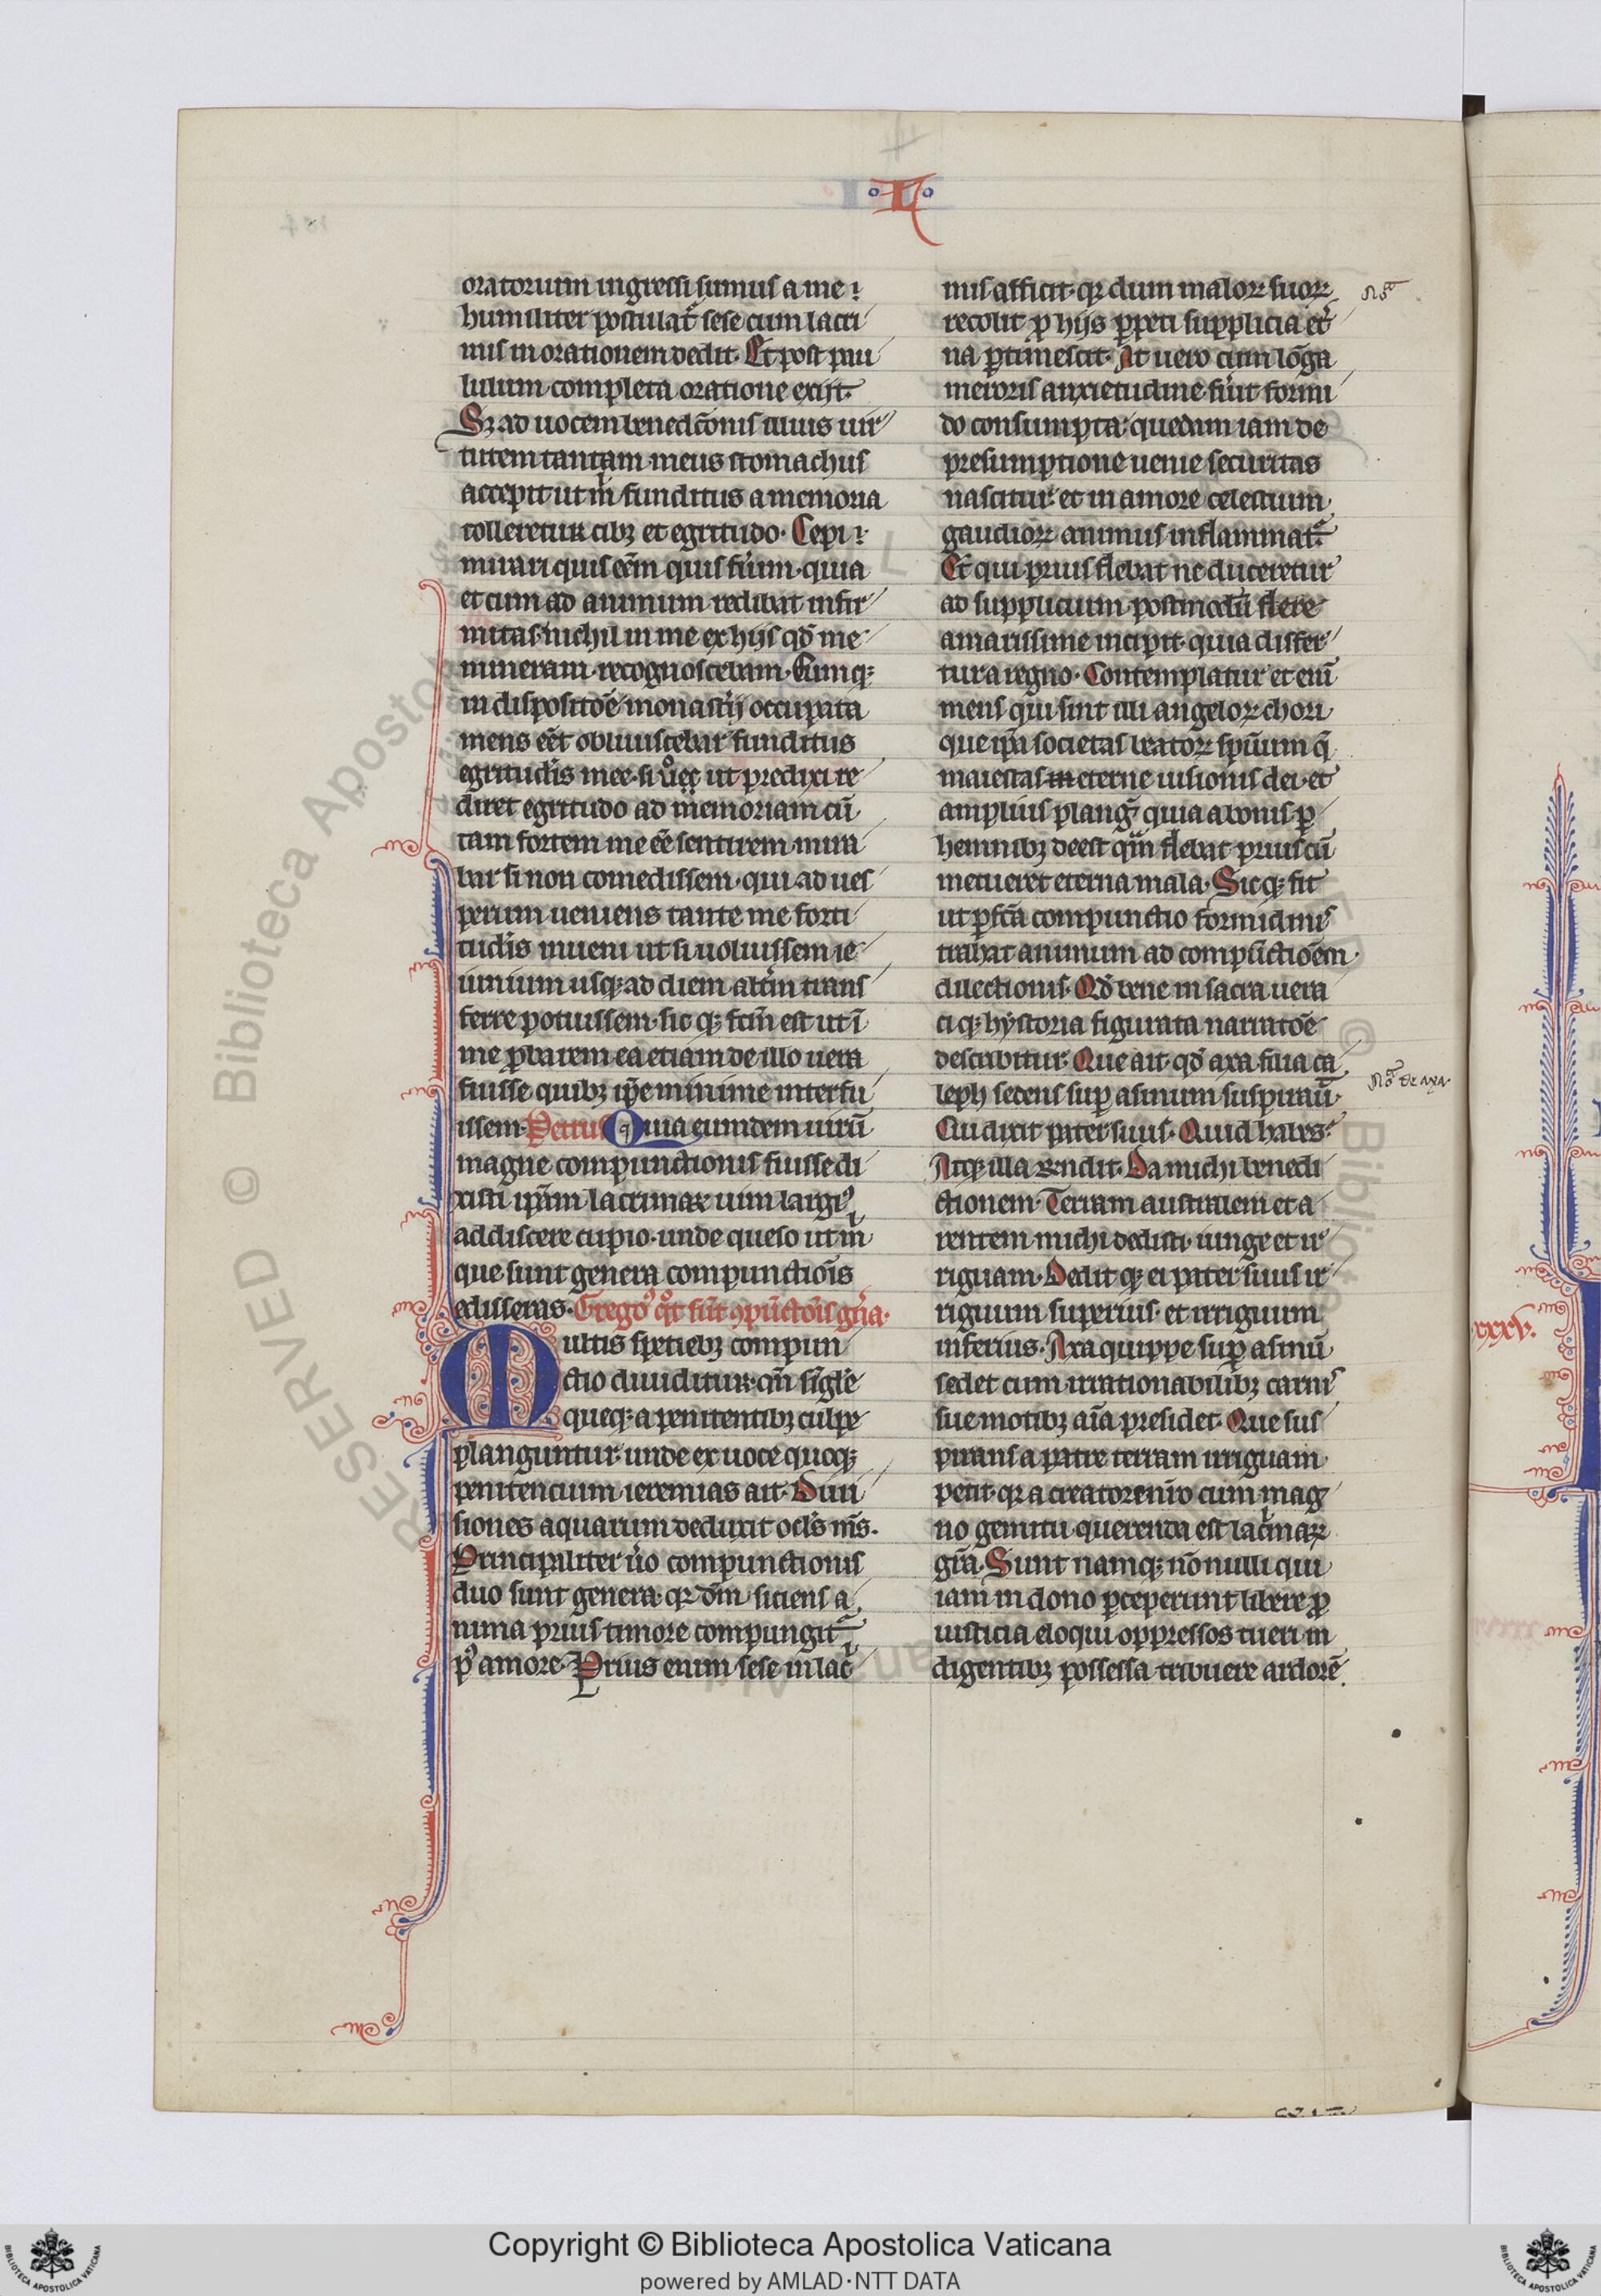 L
oratorium ingressi sumus a me:
humiliter postulat᷑ sese cum lacri
mis in orationem dedit. Et post pau
lulum completa oratione exijt.
Sꝫ ad uocem bened̄cōnis illius uir
tutem tantam meus stomachus
accepit ut m̄ funditus a memoria
tolleretur cibꝫ et egritudo. Cepi:
mirari quis eēm quis fůim. quia
et cum ad animum redibat infir
mitas. nichil in me ex hijs qď me
mineram recognoscebam. Cumqꝫ
in dispositōe monast̓ij occupata
mens eēt obliuiscebar funditus
egritudīs mee. si ůeꝫ ut predixi re
diret egritudo ad memoriam cū
tam fortem me eē sentirem mira
bar si non comedissem. qui ad ues
perum ueniens tante me forti
tudīs inueni ut si uoluissem ie
iunium usqꝫ ad diem alt̓im trans
ferre potuissem. sic qꝫ fc̄m est ut ī
me ꝓbarem ea etiam de illo uera
fuisse quibꝫ ip̄e minime interfu
issem. Petrus Quia eumdem uirū
magne compunctionis fuisse di
xisti ip̄am lacrimaꝝ uim largi᷒
addiscere cupio. unde queso ut m̄
que sunt genera compunctiōis
edisseras. Grego᷒ qͦt sūt ꝯpūctōis gn̄a.
Multis speciebꝫ compun
ctio diuiditur. qn̄ sīgl̄e
queqꝫ a penitentibꝫ culpe
planguntur. unde ex uoce quoqꝫ
penitencium ieremias ait. Diui
siones aquarum deduxit oclīs mīs.
Principaliter ůo compunctionis
duo sunt genera. qꝛ dm̄ siciens a
nima prius timore compungit᷑
p᷒ amore. Prius enim sese in lac̓
mis afficit. qꝛ dum maloꝝ suoꝝ
recolit ꝓ hijs ꝑpeti supplicia et̓
na ꝑtimescit. At uero cum lōga
meroris anxietudine fůit formi
do consumpta: quedam iam de
presumptione uenie securitas
nascitur et in amore celestium
gaudioꝝ animus inflammat᷑.
Et qui prius flebat ne duceretur
ad supplicium. postmodū flere
amarissime incipit. quia differ
tur a regno. Contemplatur et eni̅
mens qui sint illi angeloꝝ chori
que ip̄a societas beatoꝝ sp̄uum q̄
maiestas in eterne uisionis dei. et
amplius plang̓ quia a bonis ꝑ
hennibꝫ deest qͣm flebat prius cū
metueret eterna mala. Sicqꝫ fit
ut ꝑfc̄a compunctio formidinis
trahat animum ad compūctiōem
dilectionis. Qď bene in sacra uera
ciqꝫ hystoria figurata narratōe
describitur. Que ait. qď axa filia ca
leph sedens suꝑ asinum suspirau̅.
Cui dixit pater suus. Quid habes?
Atqꝫ illa rn̄dit. Da michi benedi
ctionem. Terram australem et a
rentem michi dedisti. iunge et ir
riguam. Dedit qꝫ ei pater suus ir
riguum superius. et irriguum
inferius. Axa quippe suꝑ asinū
sedet cum irrationabilibꝫ carnis
sue motibꝫ aīa presidet. Que sus
pirans a patre terram irriguam
petit. qꝛ a creatore nr̄o cum mag
no gemitu querenda est lac̓maꝝ
gr̄a. Sunt namqꝫ nōnulli qui
iam in dono ꝑceperunt libere ꝓ
iusticia eloqui oppressos tueri in
digentibꝫ possessa tribuere ardorē
Noͭ
Noͭ de axa.
xxxv.
RESERVED © Biblioteca Aposto
Copyright © Biblioteca Apostolica Vaticana
powered by AMLAD·NTT DATA